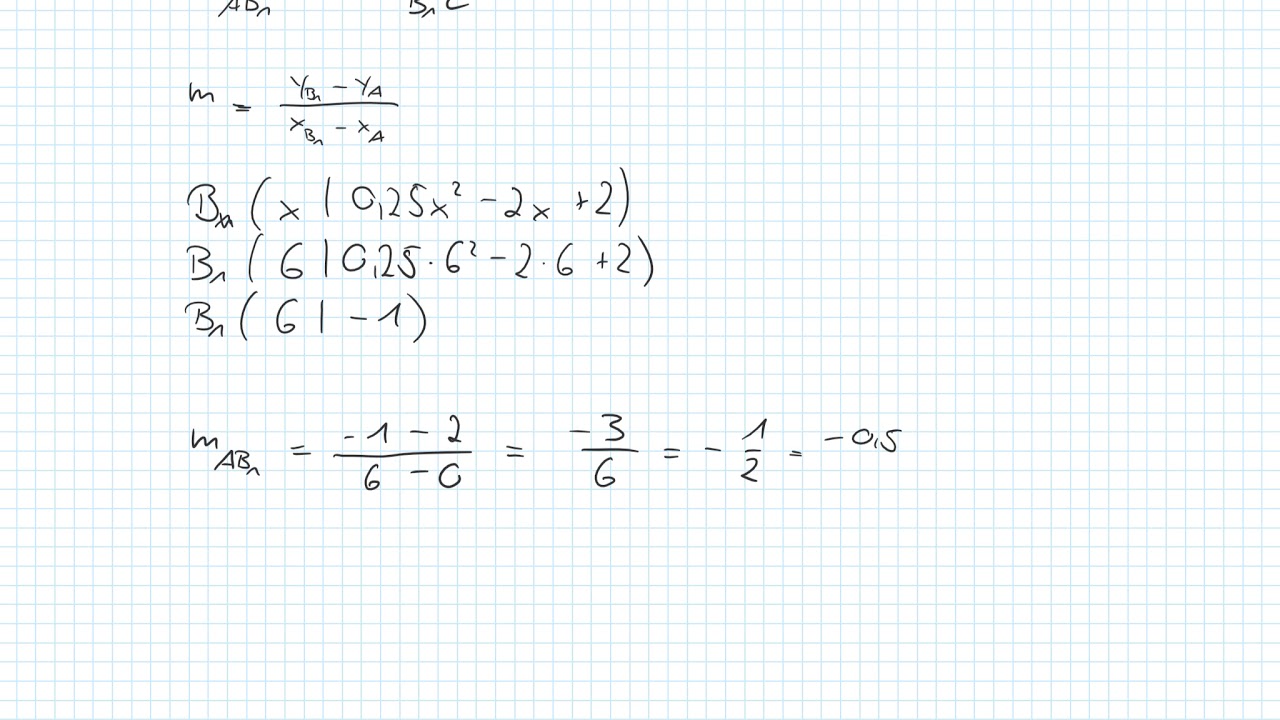 AB₁ B₁C
m = (y_B₁ − y_A) / (x_B₁ − x_A)
Bₙ ( x | 0,25x² − 2x + 2)
B₁ ( 6 | 0,25 · 6² − 2 · 6 + 2)
B₁ ( 6 | − 1)
m_AB₁ = (−1 − 2) / (6 − 0) = −3/6 = − 1/2 = −0,5